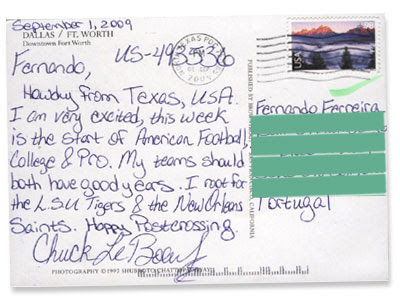 September 1, 2009
DALLAS / FT. WORTH
Downtown Fort Worth
US-493336
Fernando,
Howdy from Texas, USA.
I am very excited, this week
is the start of American Football,
College & Pro. My teams should
both have good years. I root for
the LSU Tigers & the New Orleans
Saints. Happy Postcrossing.
Chuck LeBoeuf
PHOTOGRAPHY © 1997
USA
Fernando Ferreira
Portugal
CALIFORNIA